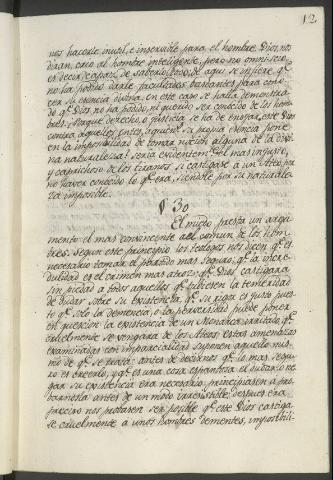 12
nos hacerle inutil, e inservible para el hombre. Dios, nos
diran, crio al hombre inteligente, pero no omni-scio
es decir, capaz de saberlo todo; de aqui se infiere, qᵉ
no ha podido darle facultades bastantes para cono-
cer su esencia divina. en este caso se halla demostra-
do qᵉ Dios no ha podido, ni querido ser conocido de los hom-
bres. ¿Con que derecho, o justicia se ha de enojar, este Dios
contra aquellos entes, aquienes su propia esencia pone
en la imposibilidad de tomar nocion alguna de la divi-
na naturaleza? Seria evidentemᵗᵉ el mas injusto,
y caprichoso de los tiranos si castigase a un Ateo, por
no haver conocido lo qᵉ era, siendole por su naturale-
za imposible.
§ 30
El miedo presta un argu-
mento el mas convincente al comun de los hom-
bres. Segun este principio los teologos nos dicen qᵉ es
necesario tomar el partido mas seguro; qᵉ la incre-
dulidad es el crimen mas atroz; qᵉ Dios castigara
sin piedad a todos aquellos qᵉ tubiesen la temeridad
de dudar sobre su existencia; qᵉ su rigor es justo pues-
to qᵉ solo la demencia, o la perversidad puede poner
en question la existencia de un Monarca irritado, qᵉ
cruelmente se vengara de los Ateos. Estas amenazas
examinadas con imparcialidad suponen aquello mis-
mo de qᵉ se trata: antes de decirnos qᵉ lo mas segu-
ro es creerlo, y qᵉ es una cosa espantosa el dudar o ne-
gar su existencia era necesario, principiasen a pro-
barnosla antes de un modo irresistible, despues era
preciso nos probasen ser posible qᵉ este Dios castiga-
se cruelmente a unos hombres dementes, imposibili-